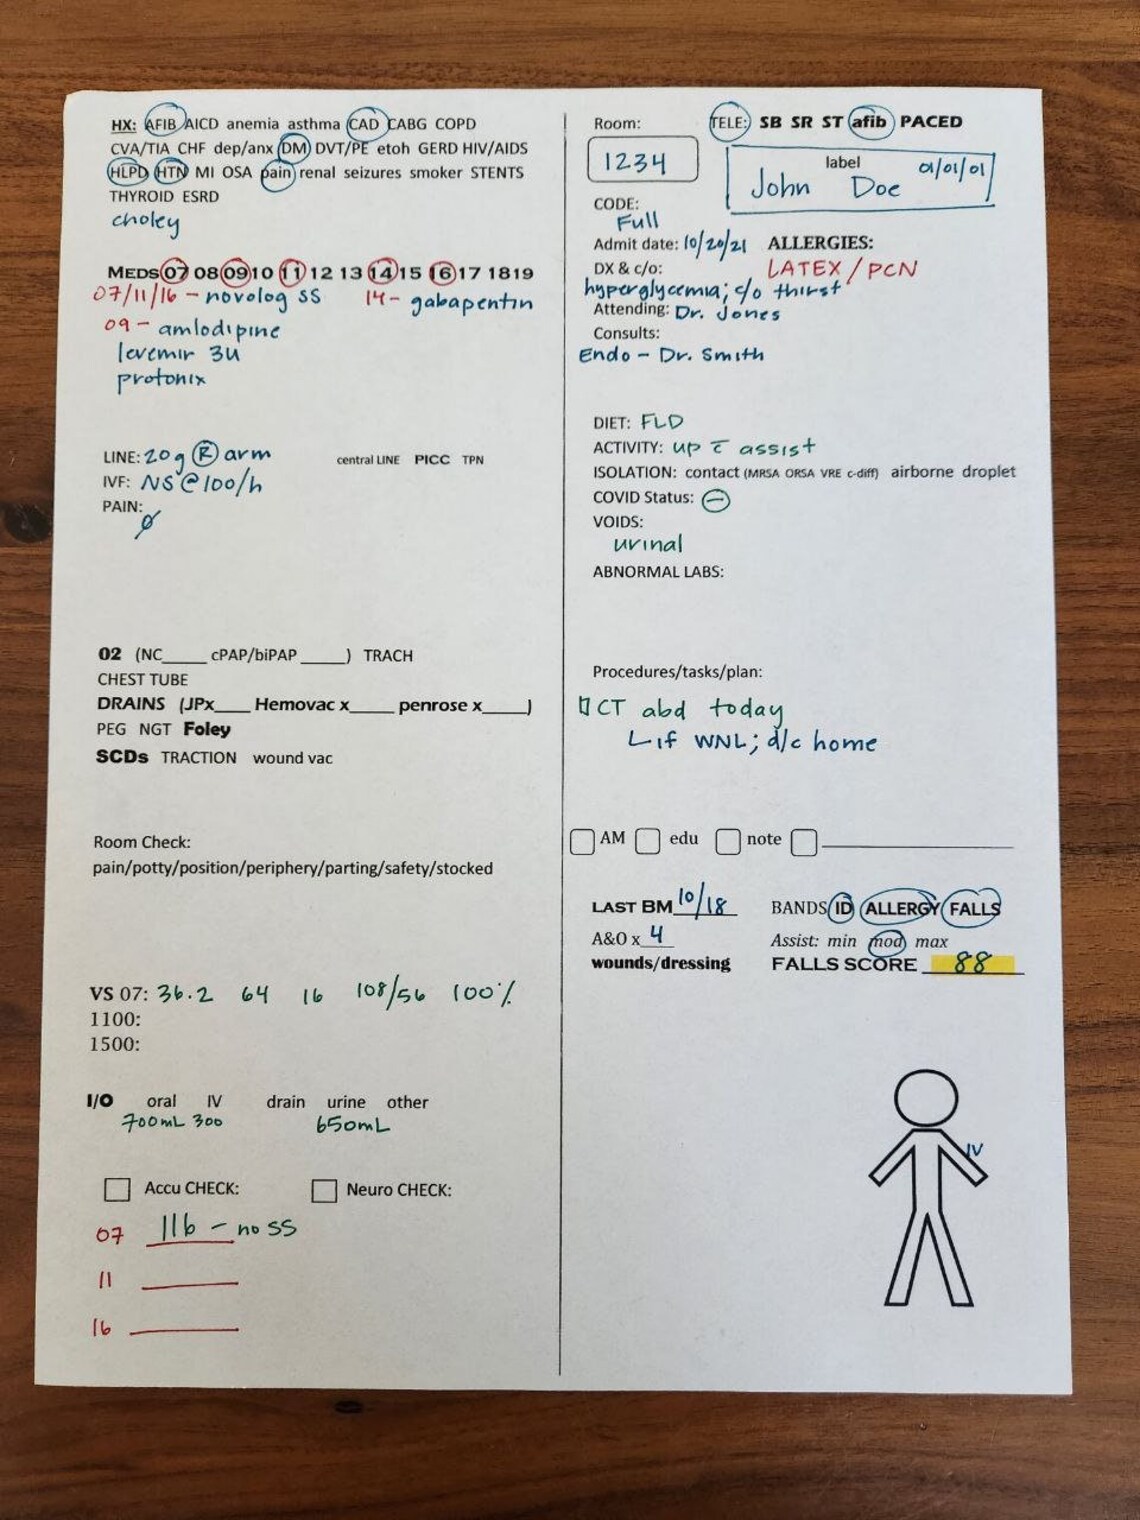 HX: AFIB AICD anemia asthma CAD CABG COPD
CVA/TIA CHF dep/anx DM DVT/PE etoh GERD HIV/AIDS
HLPD HTN MI OSA pain renal seizures smoker STENTS
THYROID ESRD
choley
MEDS 07 08 09 10 11 12 13 14 15 16 17 18 19
07/11/16 - novolog SS 14 - gabapentin
09 - amlodipine
levemir 3U
protonix
LINE: 20g R arm central LINE PICC TPN
IVF: NS @ 100/h
PAIN:
∅
02 (NC____ cPAP/biPAP ____) TRACH
CHEST TUBE
DRAINS (JPx____ Hemovac x____ penrose x____)
PEG NGT Foley
SCDs TRACTION wound vac
Room Check:
pain/potty/position/periphery/parting/safety/stocked
VS 07: 36.2 64 16 108/56 100%
1100:
1500:
I/O oral IV drain urine other
700mL 300 650mL
Accu CHECK: Neuro CHECK:
07 116 - no SS
11 ____
16 ____
Room: TELE: SB SR ST afib PACED
1234
label 01/01/01
John Doe
CODE:
Full
Admit date: 10/20/21 ALLERGIES:
DX & c/o: LATEX / PCN
hyperglycemia; c/o thirst
Attending: Dr. Jones
Consults:
Endo - Dr. Smith
DIET: FLD
ACTIVITY: up c̄ assist
ISOLATION: contact (MRSA ORSA VRE c-diff) airborne droplet
COVID Status: ⊖
VOIDS:
urinal
ABNORMAL LABS:
Procedures/tasks/plan:
CT abd today
if WNL; d/c home
AM edu note ____
LAST BM 10/18 BANDS ID ALLERGY FALLS
A&O x 4 Assist: min mod max
wounds/dressing FALLS SCORE 88
IV